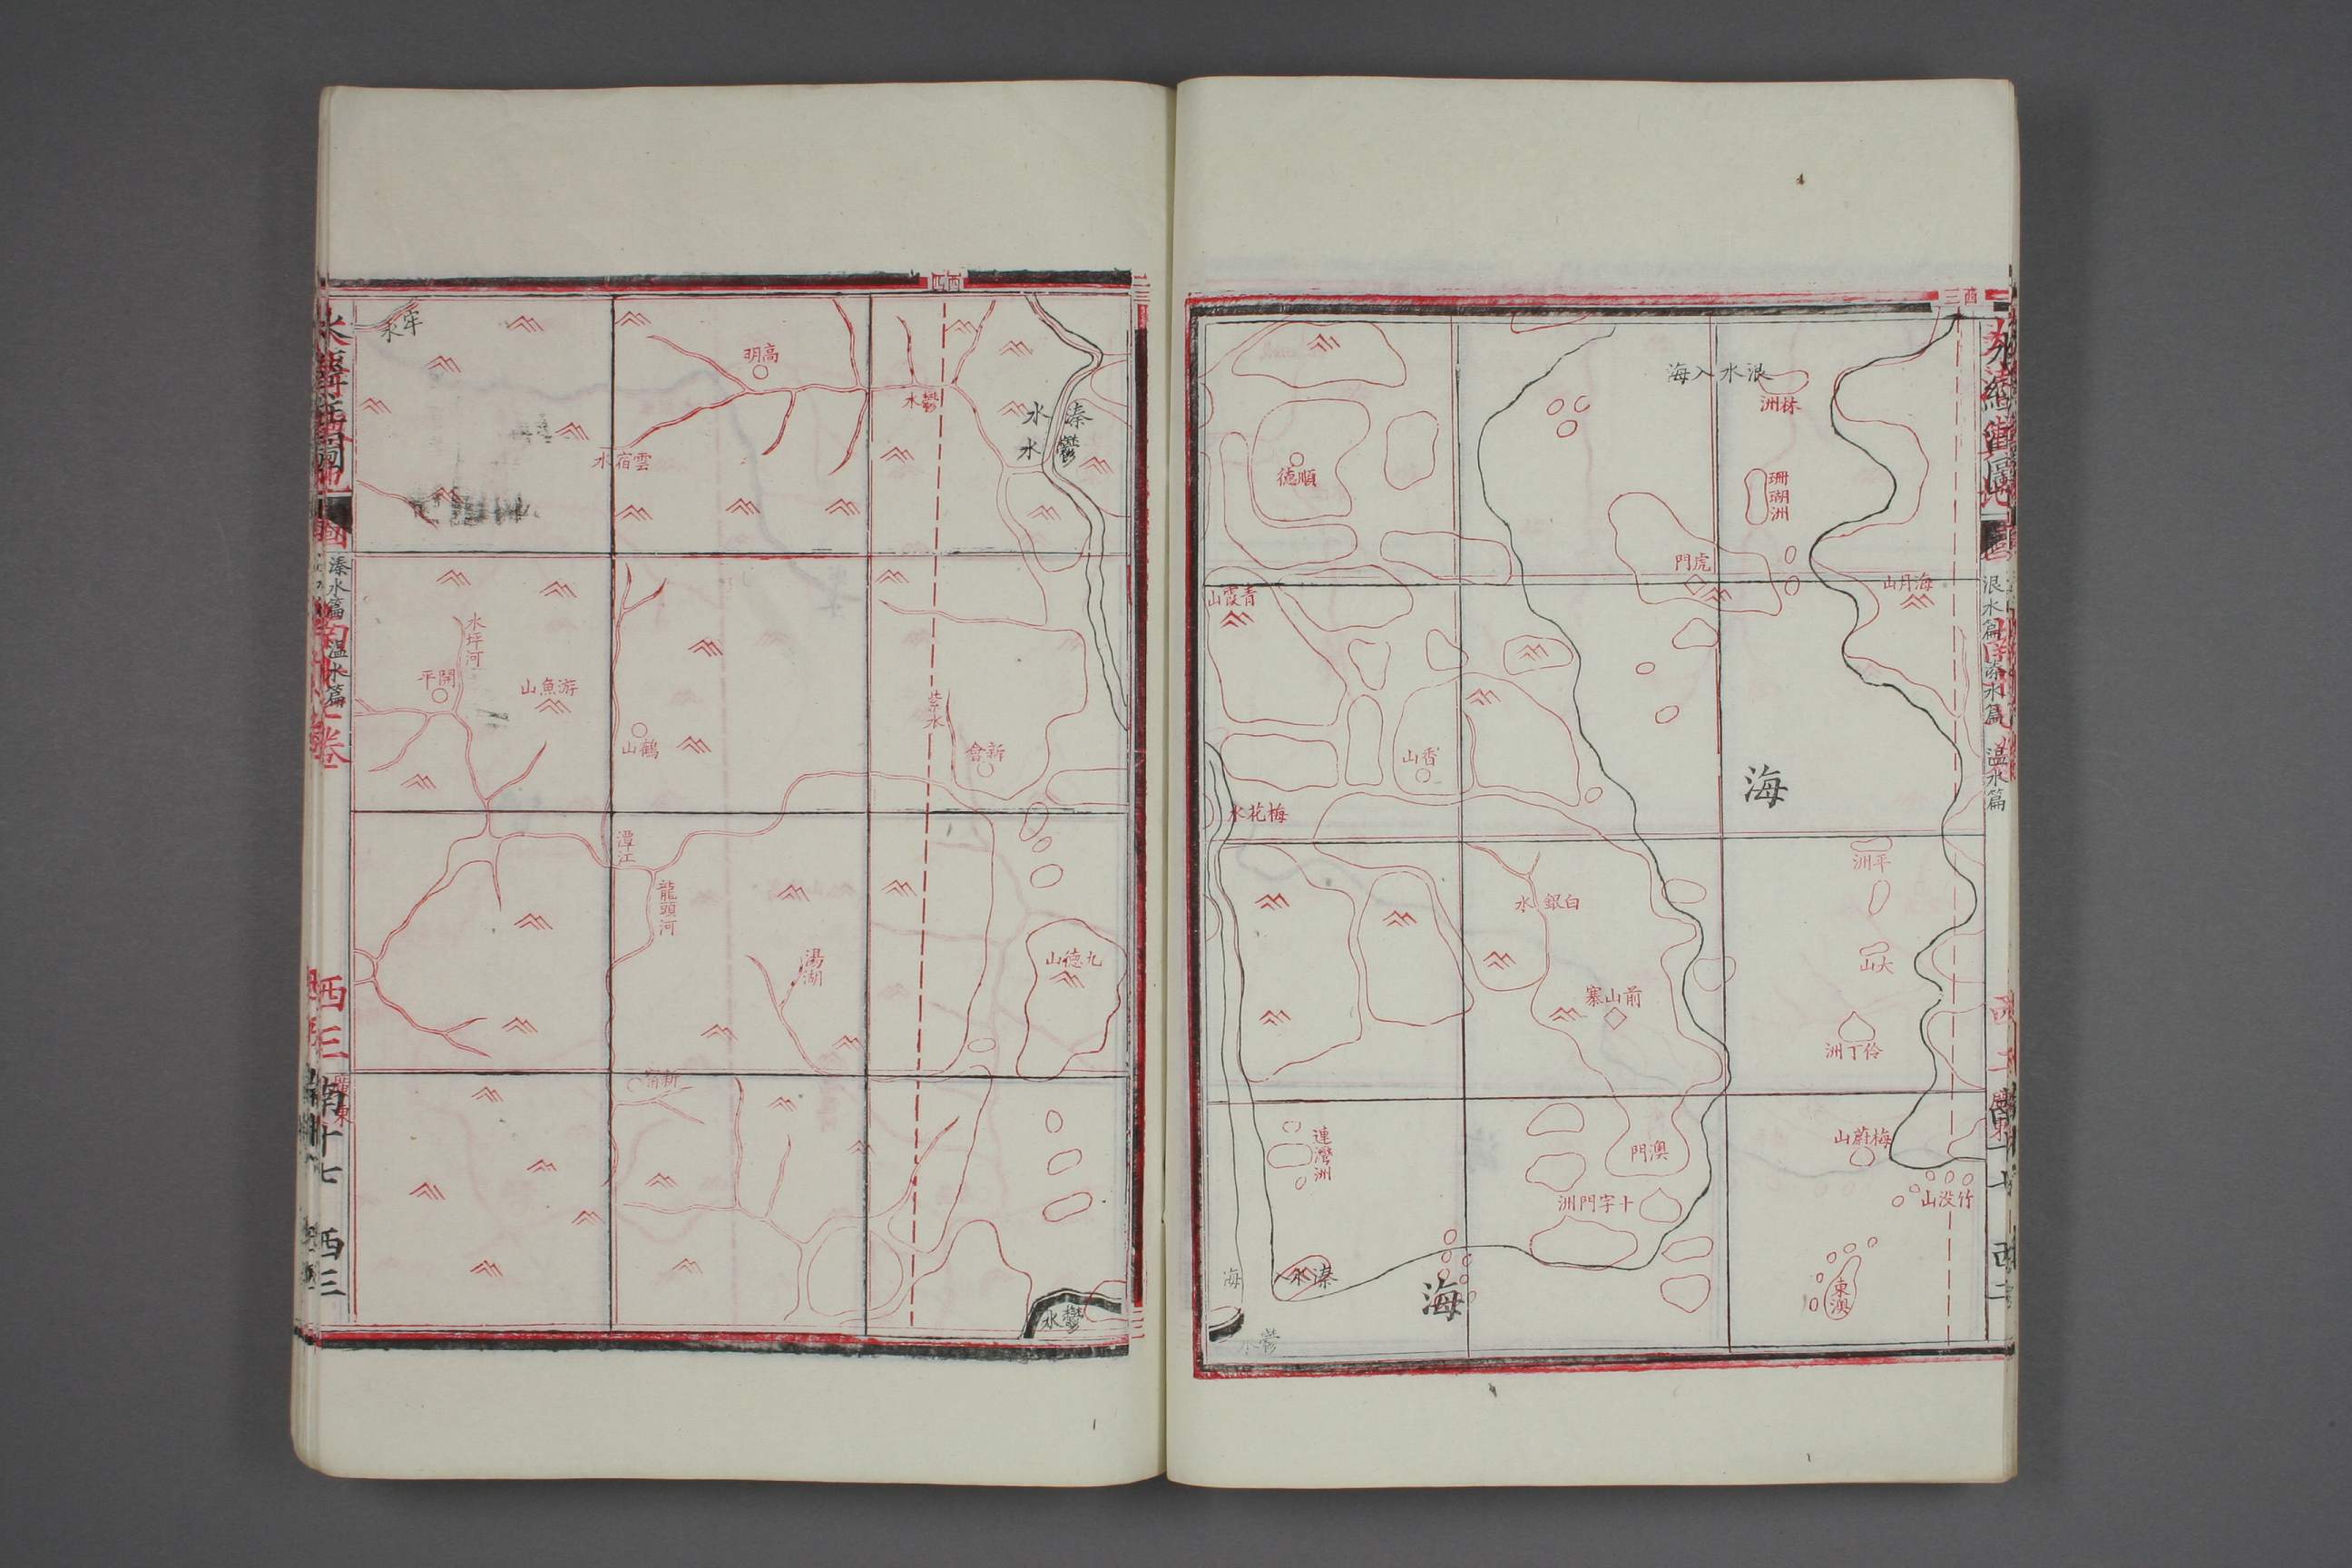 浪水入海
林洲
珊瑚洲
順德
虎門
海月山
青霞山
香山
海
梅花水
平洲
白銀水
大山
前山寨
伶丁洲
連灣洲
澳門
梅蔚山
十字門洲
竹没山
溱水入
海
海
東澳
鬱水
浪水篇
溱水篇
溫水篇
西三
西四
高明
鬱水
溱水
鬱水
雲宿水
水坪河
開平
游魚山
鶴山
紫水
新會
潭江
龍頭河
湯湖
九德山
新甯
鬱水
溱水篇
溫水篇
西三
廣東
南十七
西三